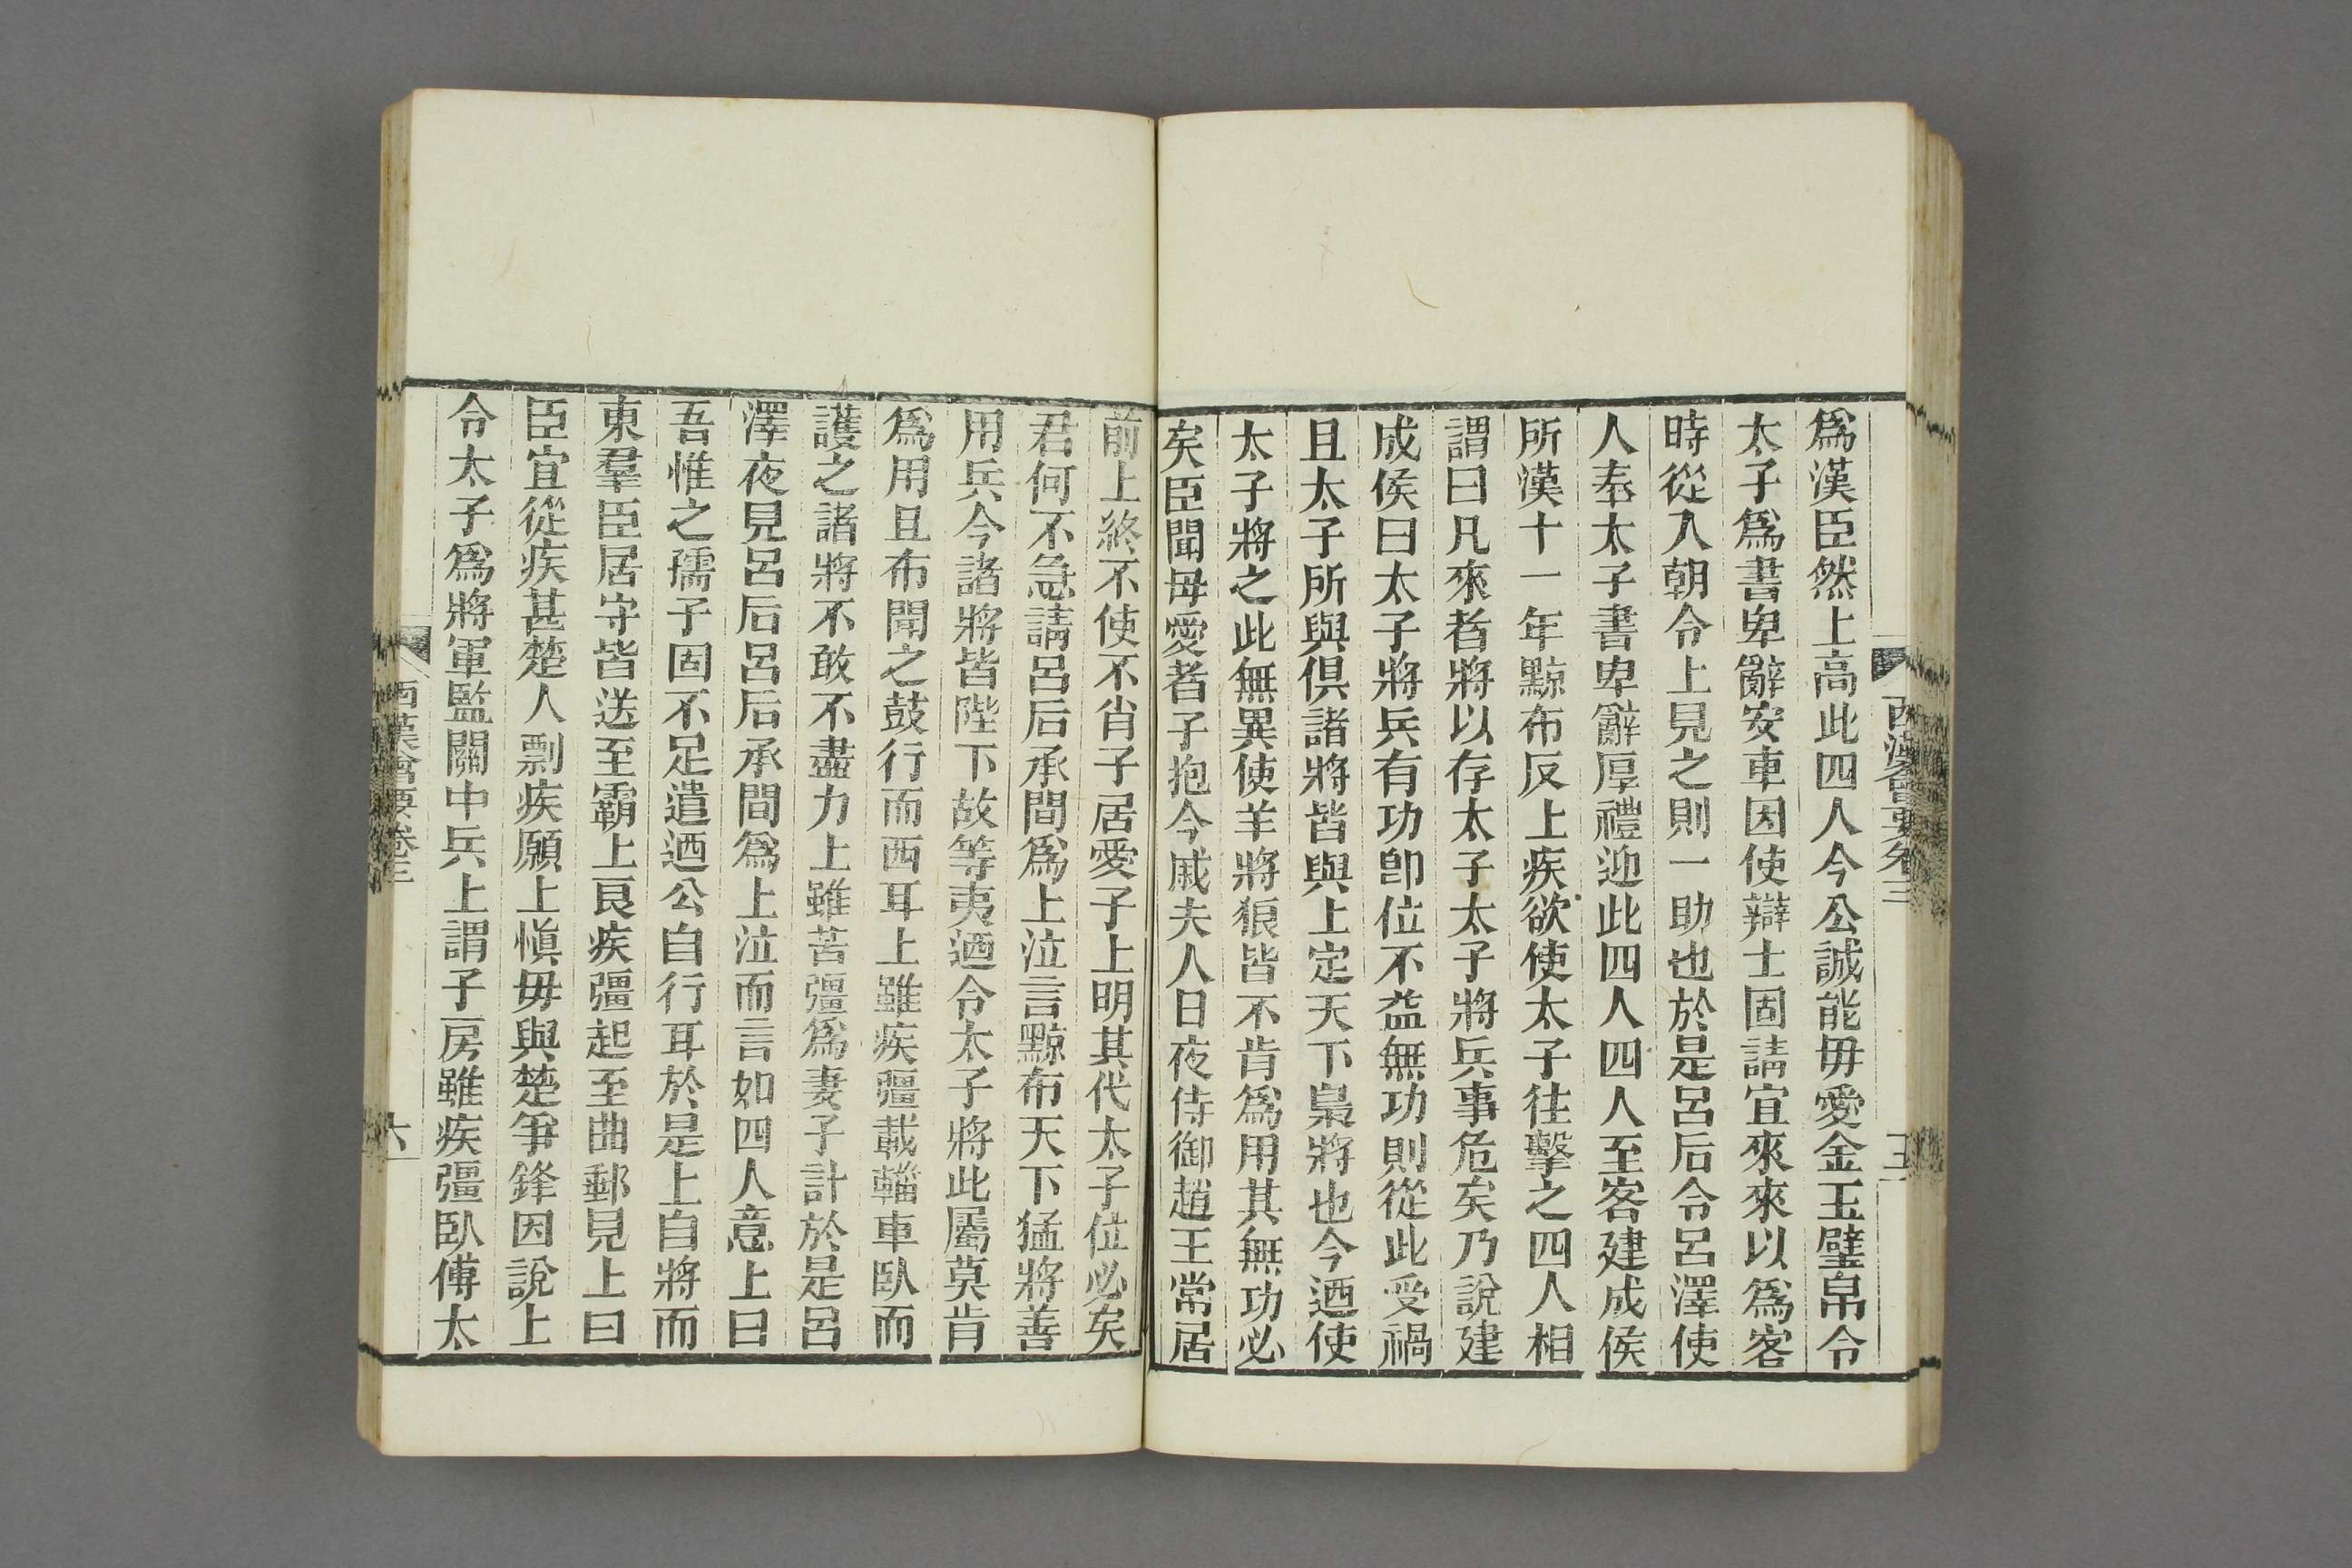 西漢會要卷三
五
爲漢臣然上高此四人今公誠能毋愛金玉璧帛令
太子爲書卑辭安車因使辯士固請宜來來以爲客
時從入朝令上見之則一助也於是呂后令呂澤使
人奉太子書卑辭厚禮迎此四人四人至客建成侯
所漢十一年黥布反上疾欲使太子往擊之四人相
謂曰凡來者將以存太子太子將兵事危矣乃說建
成侯曰太子將兵有功卽位不益無功則從此受禍
且太子所與俱諸將皆與上定天下梟將也今迺使
太子將之此無異使羊將狼皆不肯爲用其無功必
矣臣聞母愛者子抱今戚夫人日夜侍御趙王常居
前上終不使不肖子居愛子上明其代太子位必矣
君何不急請呂后承間爲上泣言黥布天下猛將善
用兵今諸將皆陛下故等夷迺令太子將此屬莫肯
爲用且布聞之鼓行而西耳上雖疾彊載輜車臥而
護之諸將不敢不盡力上雖苦彊爲妻子計於是呂
澤夜見呂后呂后承間爲上泣而言如四人意上曰
吾惟之孺子固不足遣迺公自行耳於是上自將而
東羣臣居守皆送至霸上良疾彊起至曲郵見上曰
臣宜從疾甚楚人剽疾願上愼毋與楚爭鋒因說上
令太子爲將軍監關中兵上謂子房雖疾彊臥傅太
西漢會要卷三
六